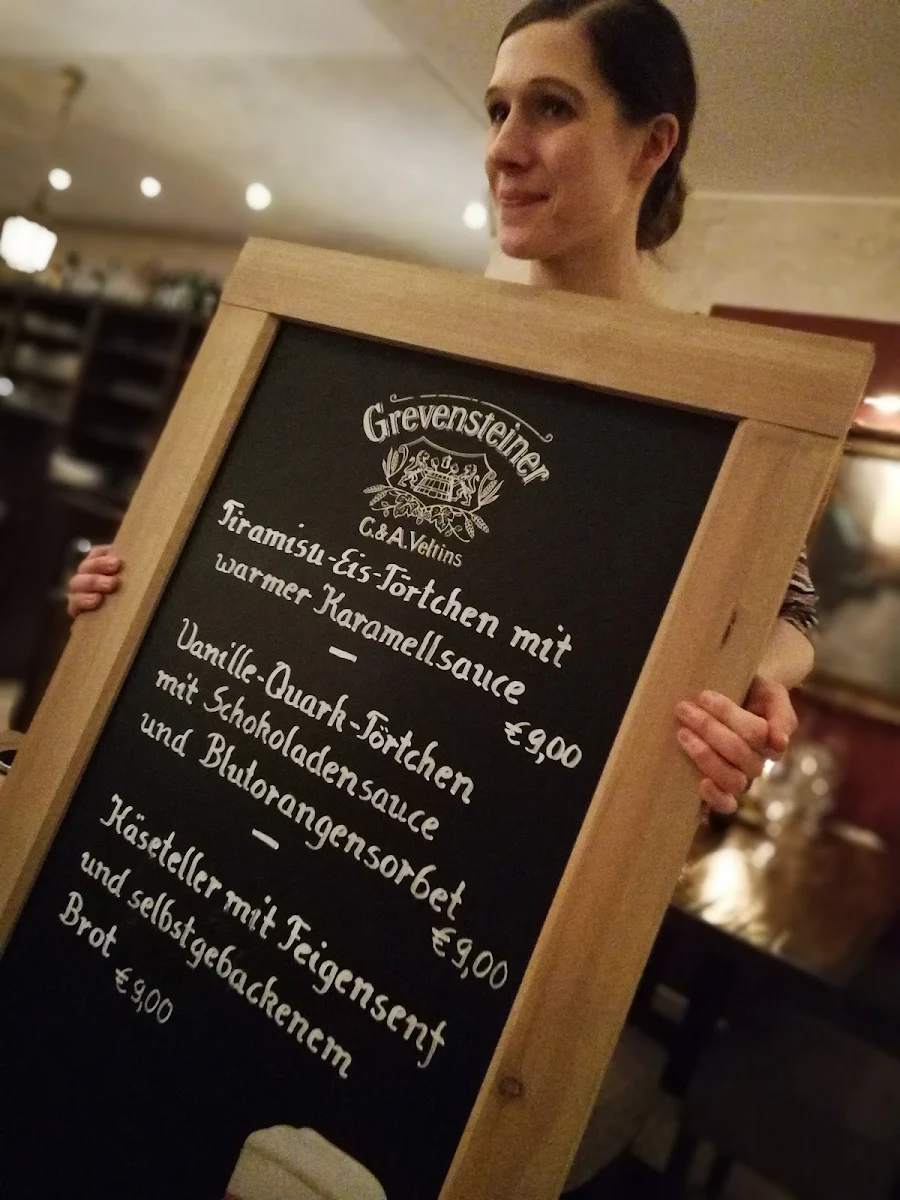 Grevensteiner
C.&A.Veltins
Tiramisu-Eis-Törtchen mit
warmer Karamellsauce
€9,00
Vanille-Quark-Törtchen
mit Schokoladensauce
und Blutorangensorbet
€9,00
Käseteller mit Feigensenf
und selbstgebackenem
Brot
€9,00